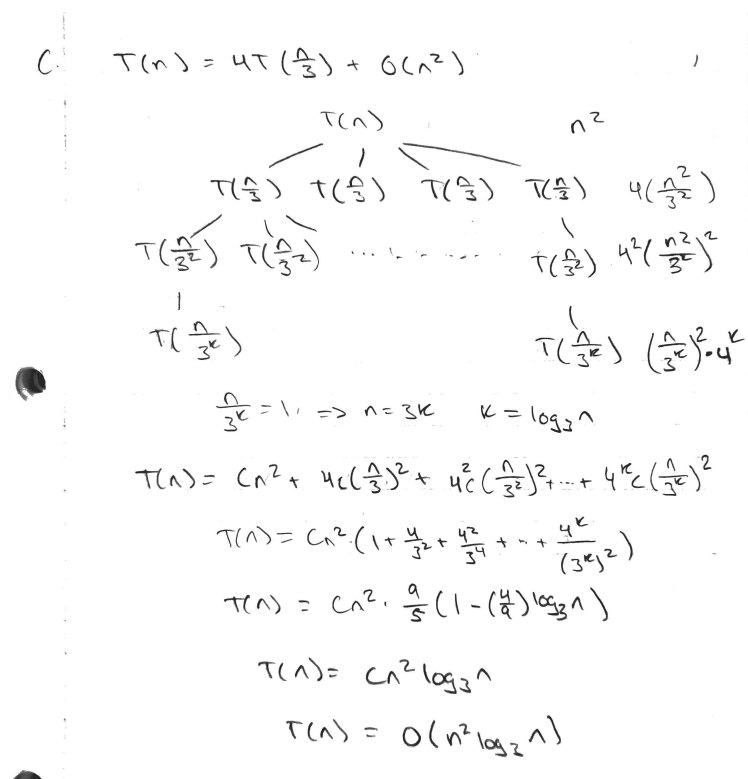 C. T(n) = 4T(n/3) + O(n²)
T(n) n²
T(n/3) T(n/3) T(n/3) T(n/3) 4(n²/3²)
T(n/3²) T(n/3²) ........... T(n/3²) 4²(n²/3²)²
T(n/3ᵏ) T(n/3ᵏ) (n/3ᵏ)²·4ᵏ
n/3ᵏ = 1 => n = 3k k = log₃n
T(n) = Cn² + 4c(n/3)² + 4²c(n/3²)² + ... + 4ᵏc(n/3ᵏ)²
T(n) = Cn²·(1 + 4/3² + 4²/3⁴ + ... + 4ᵏ/(3ᵏ)²)
T(n) = Cn² · 9/5 (1 - (4/9) log₃n)
T(n) = Cn² log₃n
T(n) = O(n² log₃n)